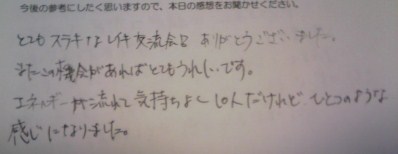 今後の参考にしたく思いますので、本日の感想をお聞かせください。
とてもステキなレイキ交流会を ありがとうございました。
またこの機会があればとてもうれしいです。
エネルギーが流れて気持ちよく 10人だけれど ひとつのような
感じになりました。